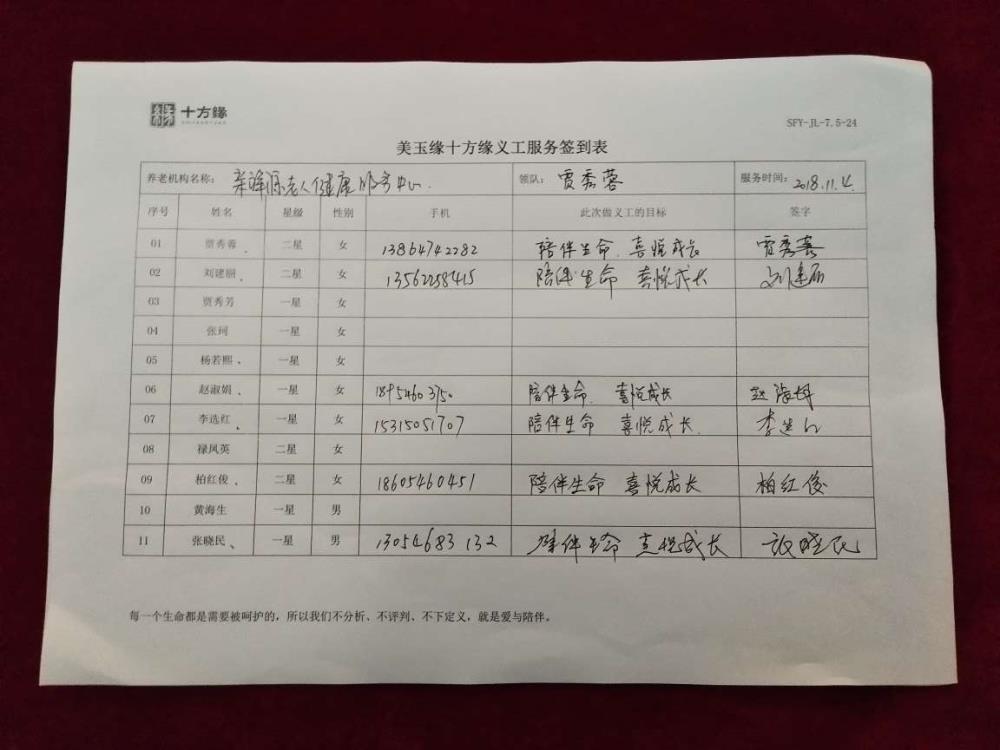 十方缘
SFY-JL-7.5-24
美玉缘十方缘义工服务签到表
养老机构名称： 老人健康服务中心 领队： 贾秀蓉 服务时间： 2018.11.4.
序号 姓名 星级 性别 手机 此次做义工的目标 签字
01 贾秀蓉 二星 女 13864742282 陪伴生命 喜悦成长 贾秀蓉
02 刘建丽 二星 女 13562058415 陪伴生命 喜悦成长 刘建丽
03 贾秀芳 一星 女
04 张珂 一星 女
05 杨若熙 一星 女
06 赵淑娟 一星 女 陪伴生命 喜悦成长
07 李选红 一星 女 15315051707 陪伴生命 喜悦成长 李选红
08 禄凤英 二星 女
09 柏红俊 二星 女 18605460451 陪伴生命 喜悦成长 柏红俊
10 黄海生 一星 男
11 张晓民 一星 男 13054683132 陪伴生命 喜悦成长 张晓民
每一个生命都是需要被呵护的，所以我们不分析、不评判、不下定义，就是爱与陪伴。